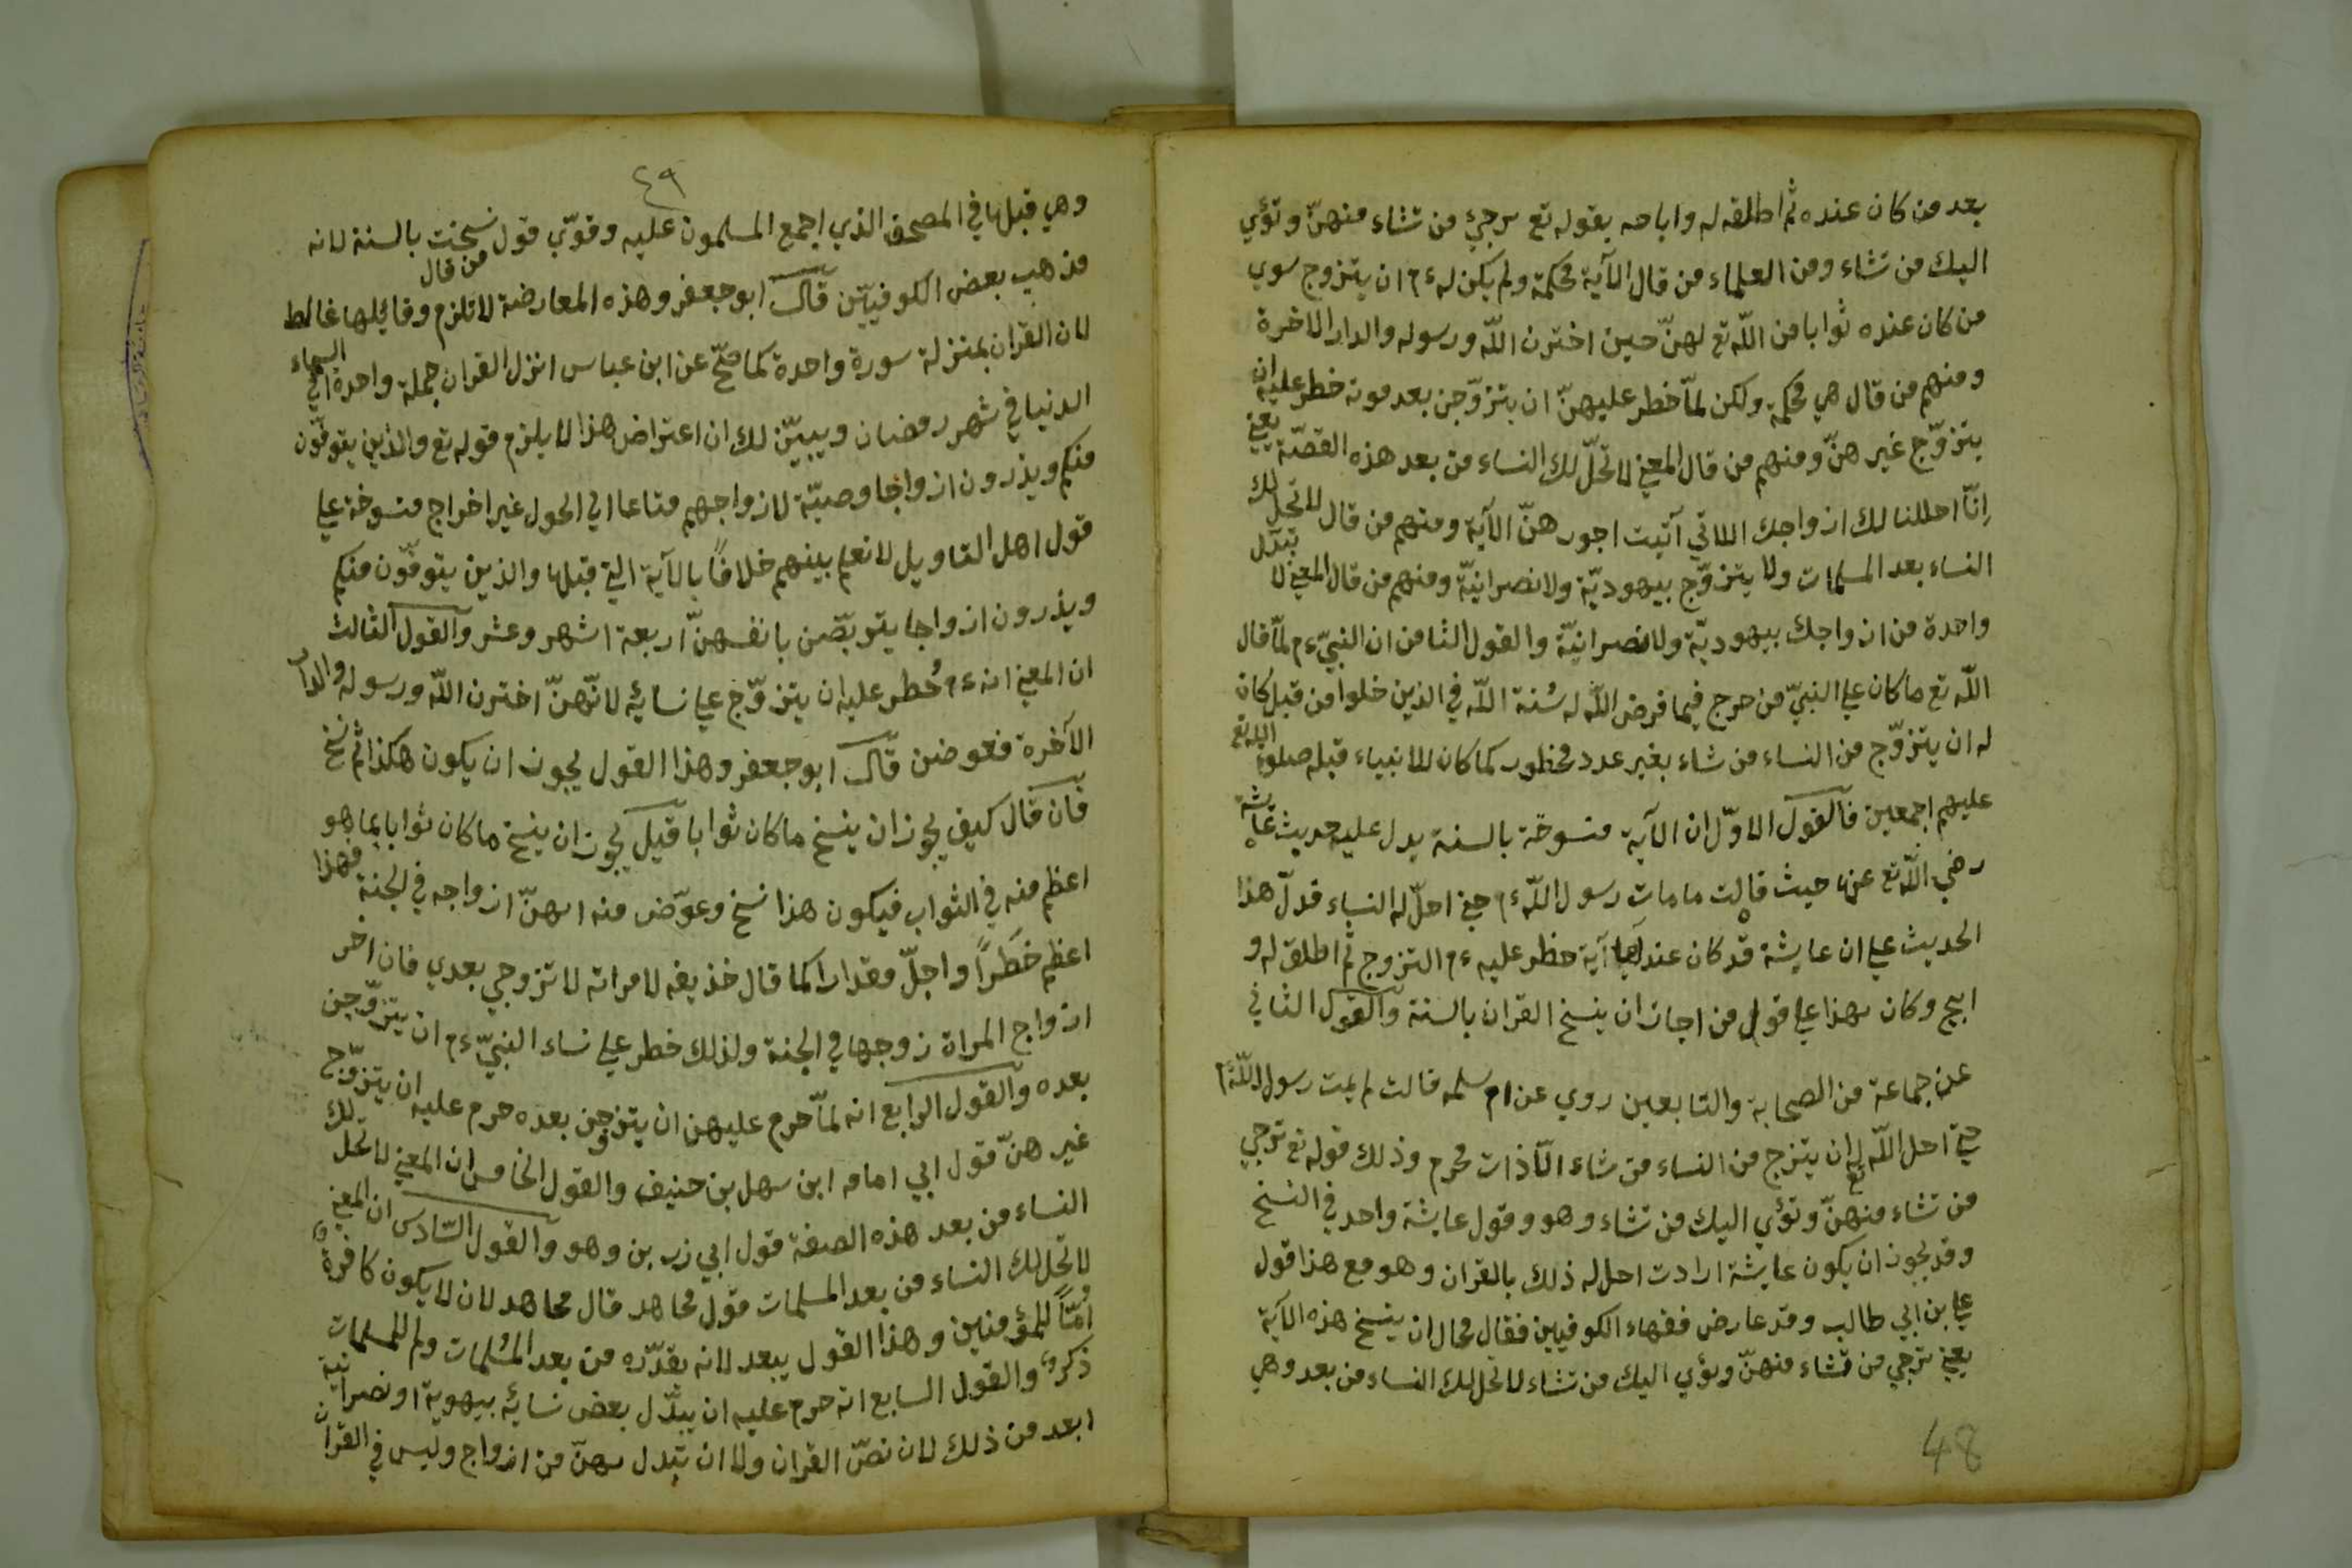 بعد من كان عنده ثم اطلقه له واباحه بقوله تع ترجئ من تشاء منهنّ وتؤي
اليك من تشاء ومن العلماء من قال الآية محكمة ولم يكن له ءم ان يتزوج سوي
من كان عنده ثوابا من اللّه تع لهنّ حين اخترن اللّه ورسوله والدار الاخرة
ومنهم من قال هي محكمة ولكن لمّا خطر عليهنّ ان يتزوّجن بعد موته خطر عليه ان
يتزوّج غيرهنّ ومنهم من قال المعني لا تحلّ لك النساء من بعد هذه القصّة يعني
اِنّا احللنا لك ازواجك اللاتي آتيت اجورهنّ الآية ومنهم من قال لا تحل لك
النساء بعد المسلمات ولا يتزوّج بيهوديّة ولا نصرانيّة ومنهم من قال المعني لا تبدّل
واحدة من ازواجك بيهوديّة ولا نصرانيّة والقول الثامن ان النبيّ ءم لمّا قال
اللّه تع ما كان علي النبيّ من حرج فيما فرض اللّه له سُنة اللّه في الذين خلوا من قبل كان
له ان يتزوّج من النساء من شاء بغير عدد محظور كما كان للانبياء قبله صلوة الله تع
عليهم اجمعين فالقول الاوّل ان الآية منسوخة بالسنة يدل عليه حديث عايشة
رضي اللّه تع عنها حيث قالت ما مات رسول اللّه ءم حتي احلّ له النساء فدلّ هذا
الحديث علي ان عايشة قد كان عندها آية حظر عليه ءم التزوج ثم اطلق له و
ابيح وكان بهذا علي قول من اجاز ان ينسخ القران بالسنة والقول الثاني
عن جماعة من الصحابة والتابعين روي عن ام سلمه قالت لم يمت رسول اللّه ءم
حتي احل اللّه تع له ان يتزوج من النساء من شاء الّا ذات محرم وذلك قوله تع ترجي
من تشاء منهنّ وتؤي اليك من تشاء وهو وقول عايشة واحد في النسخ
وقد يجوز ان يكون عايشة ارادت احل له ذلك بالقران وهو مع هذا قول
علي بن ابي طالب وقد عارض فقهاء الكوفيين فقال محال ان ينسخ هذه الآية
يعني ترجي من تشاء منهنّ وتؤي اليك من تشاء لا تحل لك النساء من بعد وهي
48
٤٩
وهي قبلها في المصحف الذي اجمع المسلمون عليه وقوّي قول من قال نسخت بالسنة لانه
مذهب بعض الكوفييّن قال ابو جعفر وهذه المعارضة لا تلزم وقائلها غالط
لان القران بمنزلة سورة واحدة كما صحّ عن ابن عباس انزل القران جملة واحدة الي السماء
الدنيا في شهر رمضان ويبيّن لك ان اعتراض هذا لا يلزم قوله تع والذين يتوفّون
منكم ويذرون ازواجا وصيّة لازواجهم متاعا الي الحول غير اخراج منسوخة علي
قول اهل التاويل لا نعلم بينهم خلافًا بالآية التي قبلها والذين يتوفّون منكم
ويذرون ازواجا يتربّصن بانفسهنّ اربعة اشهر وعشر والقول الثالث
ان المعني انه ءم حُطر عليه ان يتزوّج علي نسائه لانّهنّ اخترن اللّه ورسوله والدار
الآخرة فعوضن قال ابو جعفر وهذا القول يجوز ان يكون هكذا ثم نسخ
فان قال كيف يجوز ان ينسخ ما كان ثوابا قيل يجوز ان ينسخ ما كان ثوابا بما هو
اعظم منه في الثواب فيكون هذا نسخ وعوّض منه انهنّ ازواجه في الجنة فهذا
اعظم خَطَراً واجلّ مقدارا كما قال خذيفه لامراته لا تزوجي بعدي فان اخر
ازواج المراة زوجها في الجنة ولذلك خطر علي نساء النبيّ ءم ان يتزوّجن
بعده والقول الرابع انه لمّا حرم عليهن ان يتزوجن بعده حرم عليه ان يتزوّج
غيرهنّ قول ابي امامه ابن سهل بن حنيف والقول الخامس ان المعني لا تحل لك
النساء من بعد هذه الصفة قول ابي زر بن وهو والقول السّادس ان المعني
لا تحل لك النساء من بعد المسلمات قول مجاهد قال مجاهد لان لا يكون كافرة
امّاً للمؤمنين وهذا القول يبعد لانه يقدّره من بعد المُسلمات ولم للمسلمات
ذكر والقول السابع انه حرم عليه ان يبدّل بعض نسائه بيهوية او نصرانية
ابعد من ذلك لان نصّ القران ولا ان تبدل بهنّ من ازواج وليس في القران